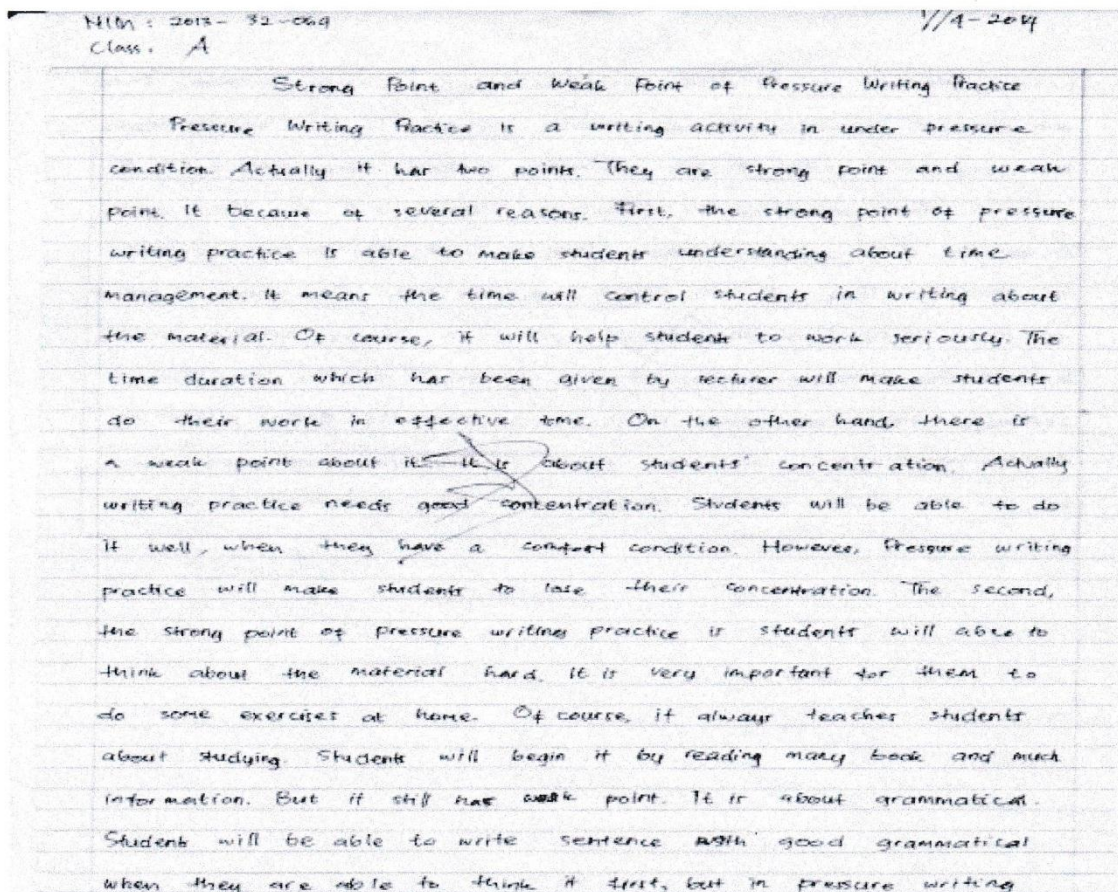 NIM : 2013-32-069
1/4-2014
Class. A
Strong Point and Weak Point of Pressure Writing Practice
Pressure Writing Practice is a writing activity in under pressure
condition. Actually it has two points. They are strong point and weak
point. It because of several reasons. First, the strong point of pressure
writing practice is able to make students understanding about time
management. It means the time will control students in writing about
the material. Of course, it will help student to work seriously. The
time duration which has been given by lecturer will make students
do their work in effective time. On the other hand, there is
a weak point about it. It is about students' concentration. Actually
writing practice needs good concentration. Students will be able to do
it well, when they have a comfort condition. However, Pressure writing
practice will make students to lose their concentration. The second,
the strong point of pressure writing practice is students will able to
think about the material hard. It is very important for them to
do some exercises at home. Of course, it always teaches students
about studying. Students will begin it by reading many book and much
information. But it still has weak point. It is about grammatical.
Student will be able to write sentence with good grammatical
when they are able to think it first, but in pressure writing